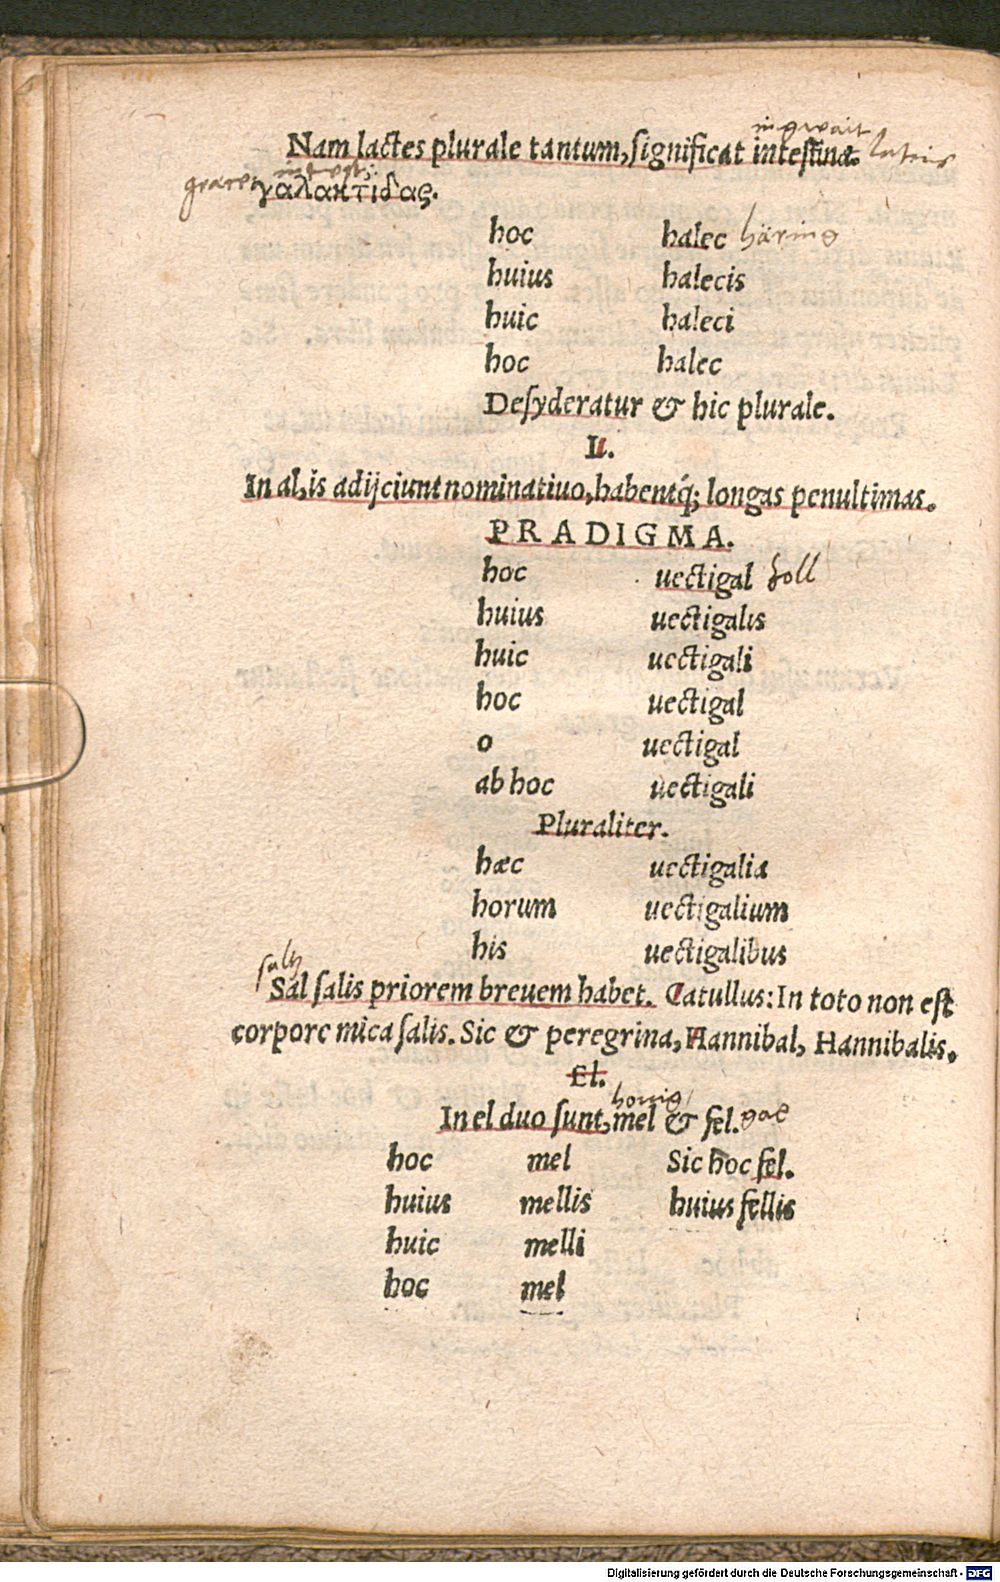 ingwait
Nam lactes plurale tantum, significat intestina. latinis
graece intest:
γαλακτίδας.
hoc halec häring
huius halecis
huic haleci
hoc halec
Desyderatur & hic plurale.
L.
In al, is adijciunt nominatiuo, habentq́; longas penultimas.
PRADIGMA.
hoc uectigal Zoll
huius uectigalis
huic uectigali
hoc uectigal
o uectigal
ab hoc uectigali
Pluraliter.
hæc uectigalia
horum uectigalium
his uectigalibus
saltz
Sal salis priorem breuem habet. Catullus: In toto non est
corpore mica salis. Sic & peregrina, Hannibal, Hannibalis.
El.
honig
In el duo sunt, mel & fel. gal
hoc mel Sic hoc fel.
huius mellis huius fellis
huic melli
hoc mel
Digitalisierung gefördert durch die Deutsche Forschungsgemeinschaft - DFG